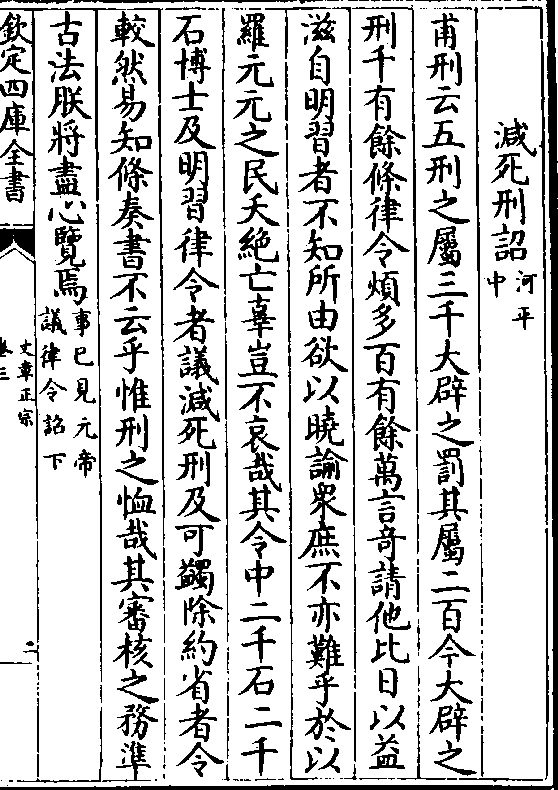 減死刑詔河平中
甫刑云五刑之屬三千大辟之罰其屬二百今大辟之
刑千有餘條律令煩多百有餘萬言竒請他比日以益
滋自明習者不知所由欲以曉諭衆庶不亦難乎於以
羅元元之民夭絶亡辜豈不哀哉其令中二千石二千
石博士及明習律令者議減死刑及可蠲除約省者令
較然易知條奏書不云乎惟刑之恤哉其審核之務準
古法朕將盡心覽焉事已見元帝議律令詔下
欽定四庫全書
文章正宗
卷三
二